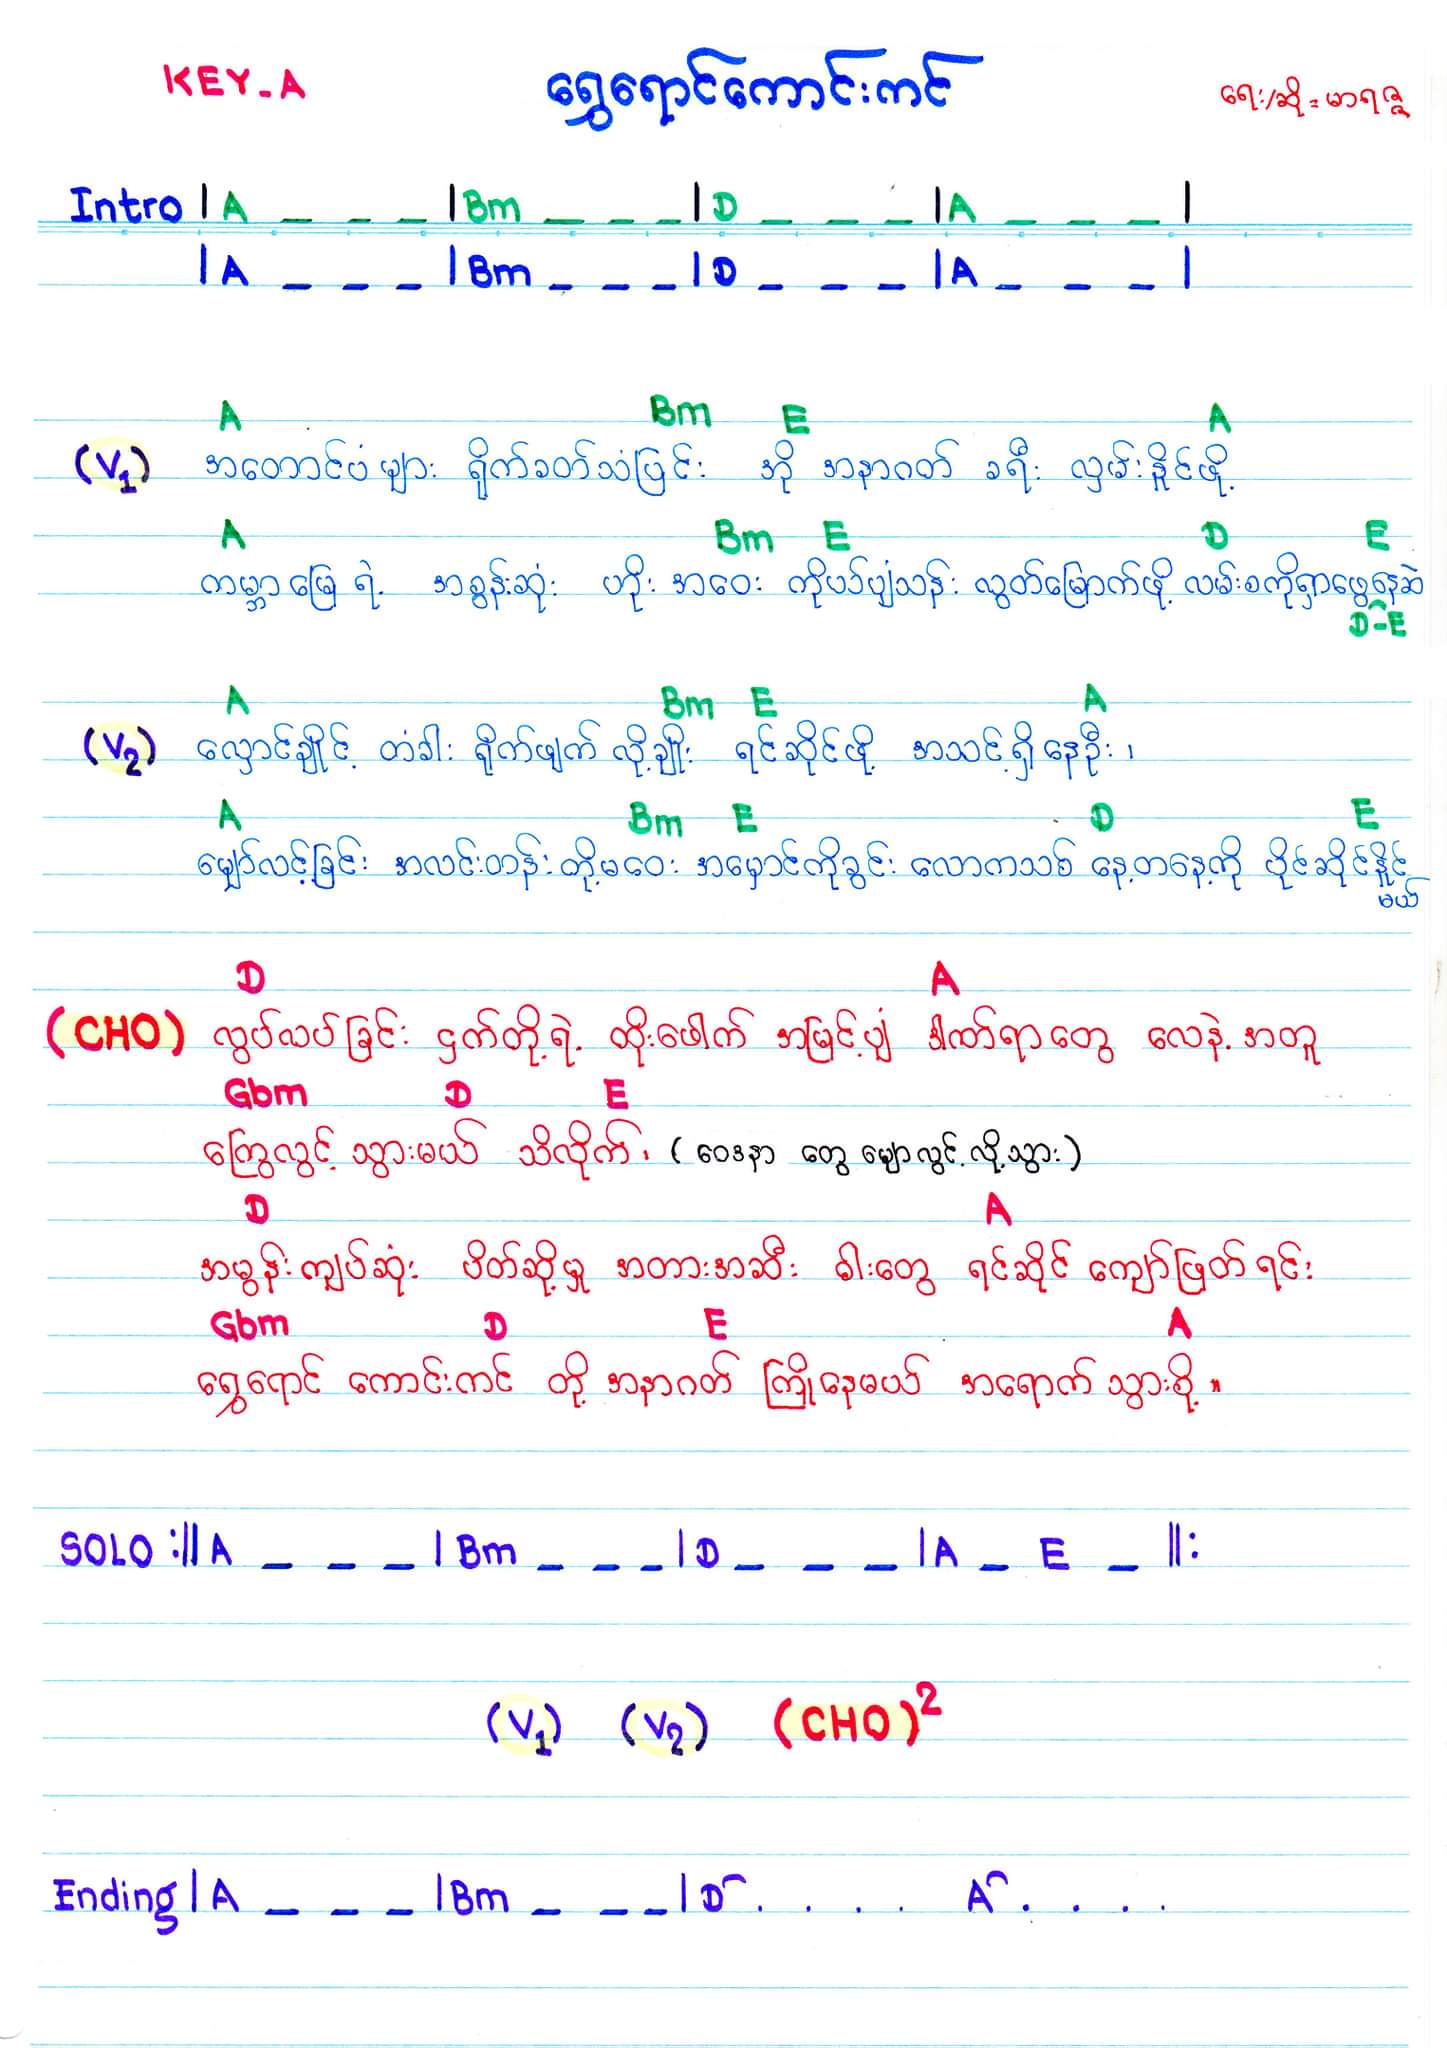 KEY-A
ရွှေရောင်ကောင်းကင်
ရေး/ဆို = မာရဇ္ဇ
Intro | A _ _ _ | Bm _ _ _ | D _ _ _ | A _ _ _ |
| A _ _ _ | Bm _ _ _ | D _ _ _ | A _ _ _ |
A Bm E A
(V1) အတောင်ပံများ ရိုက်ခတ်သံဖြင့် ဘို့ အနာဂတ် ခရီး လှမ်းနိုင်ဖို့
A Bm E D E
ကမ္ဘာမြေရဲ့ အစွန်းဆုံး ဟိုး အဝေး ကိုပယ်ပျံသန်း လွတ်မြောက်ဖို့ လမ်းစကိုရှာဖွေနေဆဲ
D-E
A Bm E A
(V2) လှောင်ချိုင့် တံခါး ရိုက်ဖျက် လို့ချိုး ရင်ဆိုင်ဖို့ အသင့်ရှိနေဦး၊
A Bm E D E
မျှော်လင့်ခြင်း အလင်းတန်းတို့မဝေး အမှောင်ကိုခွင်း လောကသစ် နေ့တနေ့ကို ပိုင်ဆိုင်နိုင်
မယ်
D A
(CHO) လွပ်လပ်ခြင်း ငှက်တို့ရဲ့ ထိုးဖေါက် အမြင့်ပျံ ဒါဏ်ရာတွေ လေနဲ့အတူ
Gbm D E
ကြွေလွင့် သွားမယ် သိလိုက်၊ (ဝေဒနာ တွေ မျောလွင့်လို့သွား)
D A
အမွန်းကျပ်ဆုံး ပိတ်ဆို့မှု အတားအဆီး ဓါးတွေ ရင်ဆိုင် ကျော်ဖြတ်ရင်း
Gbm D E A
ရွှေရောင် ကောင်းကင် တို့ အနာဂတ် ကြိုနေမယ် အရောက်သွားစို့။
SOLO :|| A _ _ _ | Bm _ _ _ | D _ _ _ | A _ E _ ||:
(V1) (V2) (CHO)2
Ending | A _ _ _ | Bm _ _ _ | D . . . . A . . . .